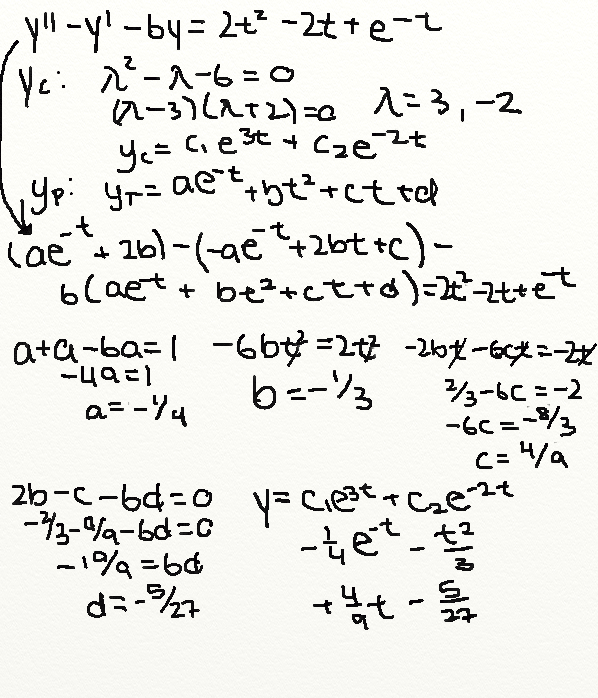 y'' - y' - 6y = 2t² - 2t + e^-t
y_c: λ² - λ - 6 = 0
(λ-3)(λ+2)=0 λ=3, -2
y_c = c₁e^3t + c₂e^-2t
y_p: y_T = ae^-t + bt² + ct + d
(ae^-t + 2b) - (-ae^-t + 2bt + c) -
6(ae^-t + bt² + ct + d) = 2t² - 2t + e^-t
a + a - 6a = 1
-4a = 1
a = -1/4
-6bt² = 2t²
b = -1/3
-2bt - 6ct = -2t
2/3 - 6c = -2
-6c = -8/3
c = 4/9
2b - c - 6d = 0
-2/3 - 4/9 - 6d = 0
-10/9 = 6d
d = -5/27
y = c₁e^3t + c₂e^-2t
-1/4 e^-t - t²/3
+ 4/9 t - 5/27